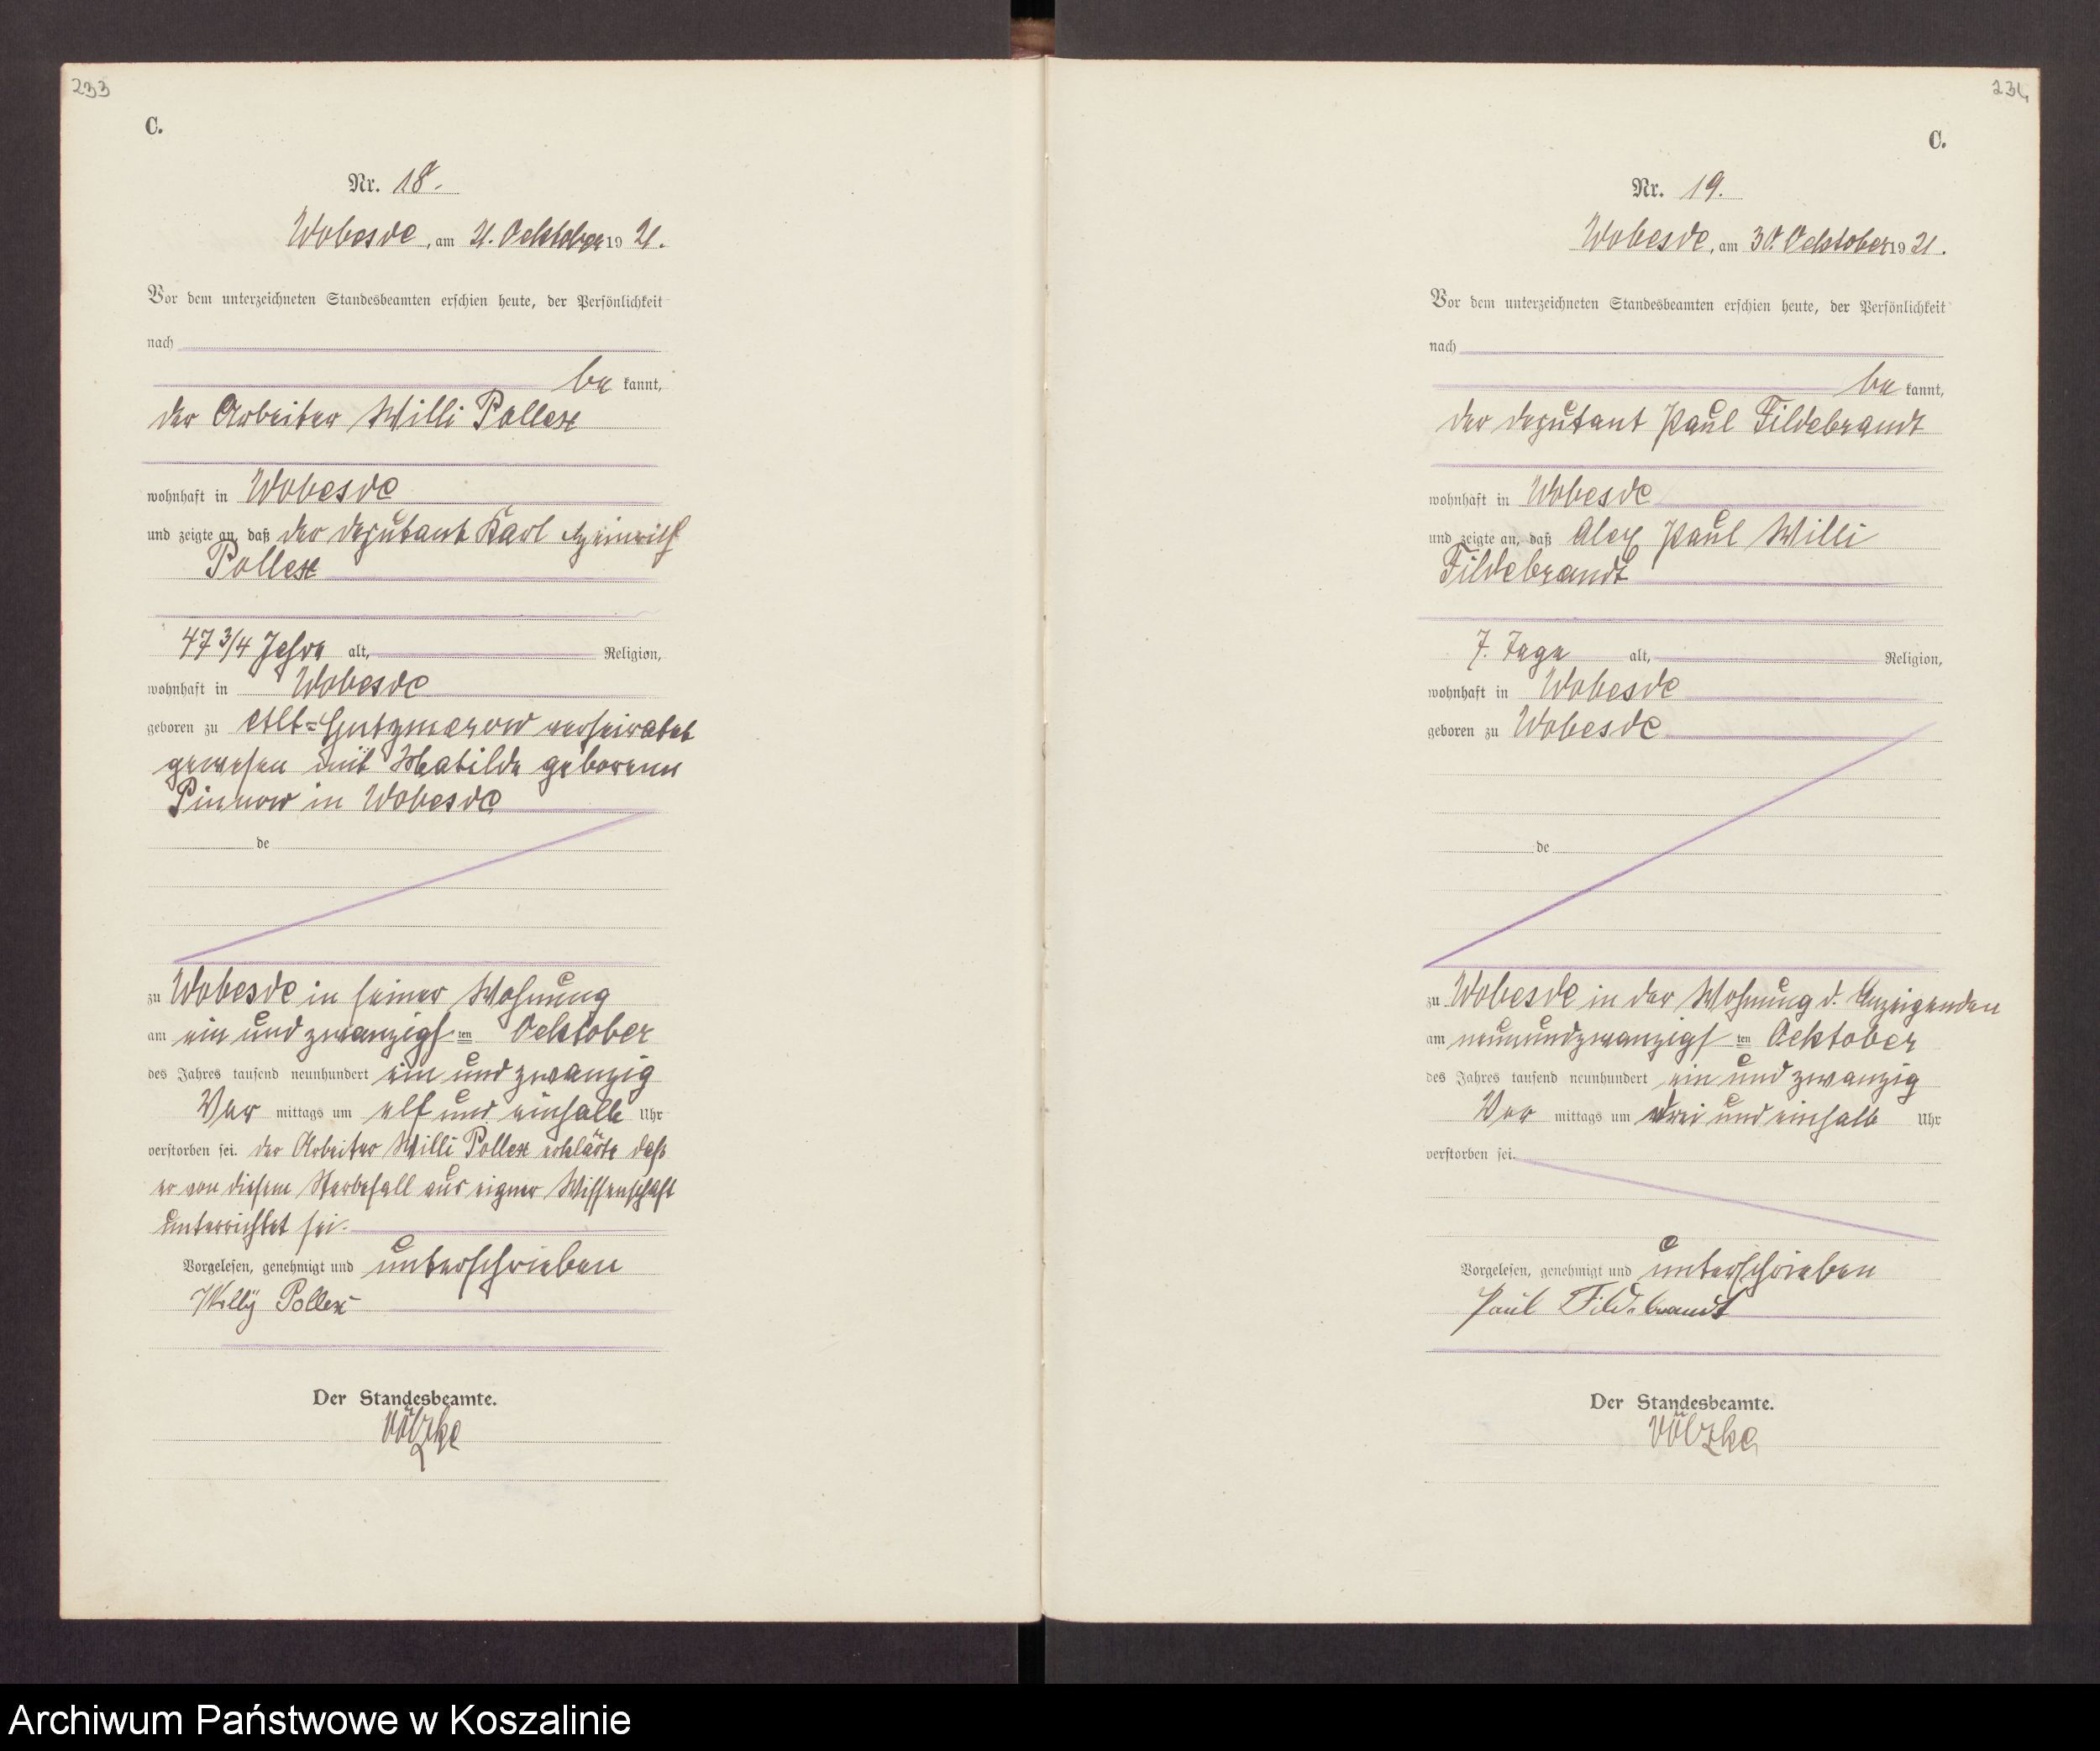 233
C.
Nr. 18.
Wobesde, am 21. Ocktober 19 21.
Vor dem unterzeichneten Standesbeamten erschien heute, der Persönlichkeit
nach
be kannt,
der Arbeiter Willi Pollex
wohnhaft in Wobesde
und zeigte an, daß der Deputant Karl Heinrich
Pollex
47 3/4 Jahre alt, Religion,
wohnhaft in Wobesde
geboren zu Alt=Gutzmerow verheiratet
gewesen mit Matilde geborene
Pinnow in Wobesde
de
zu Wobesde in seiner Wohnung
am ein und zwanzigs ten Ocktober
des Jahres tausend neunhundert ein und zwanzig
Vor mittags um elf und einhalb Uhr
verstorben sei. Der Arbeiter Willi Pollex erklärte daß
er von diesem Sterbefall aus eigner Wissenschaft
unterrichtet sei.
Vorgelesen, genehmigt und unterschrieben
Willy Pollex
Der Standesbeamte.
Völzke
234
C.
Nr. 19.
Wobesde, am 30. Ocktober 19 21.
Vor dem unterzeichneten Standesbeamten erschien heute, der Persönlichkeit
nach
be kannt,
der Deputant Paul Fildebrandt
wohnhaft in Wobesde
und zeigte an, daß Alex Paul Willi
Fildebrandt
7. Tage alt, Religion,
wohnhaft in Wobesde
geboren zu Wobesde
de
zu Wobesde in der Wohnung d. Anzeigenden
am neunundzwanzigs ten Ocktober
des Jahres tausend neunhundert ein und zwanzig
Vor mittags um drei und einhalb Uhr
verstorben sei.
Vorgelesen, genehmigt und unterschrieben
Paul Fildebrandt
Der Standesbeamte.
Völzke
Archiwum Państwowe w Koszalinie